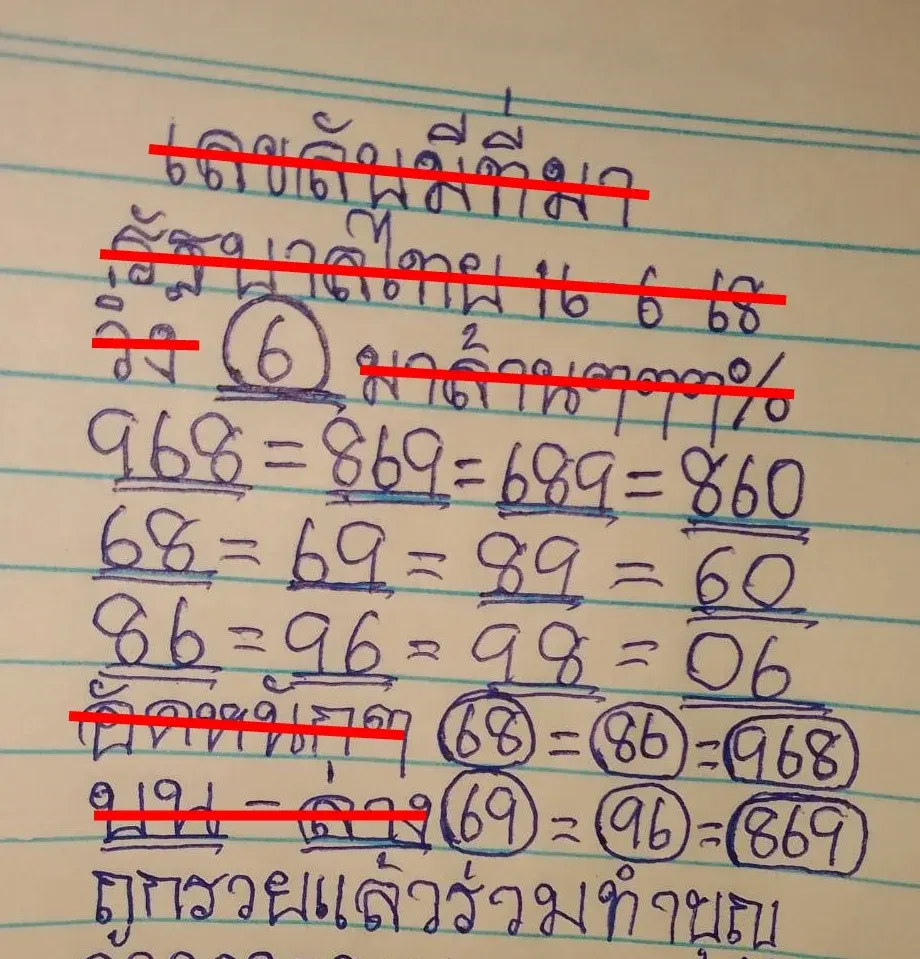 เลขลับมีที่มา
รัฐบาลไทย 16 6 68
วิ่ง 6 มาล้านๆๆๆ%
968 = 869 = 689 = 860
68 = 69 = 89 = 60
86 = 96 = 98 = 06
อัดหนักๆ 68 = 86 = 968
บน - ล่าง 69 = 96 = 869
ถูกรวยแล้วร่วมทำบุญ